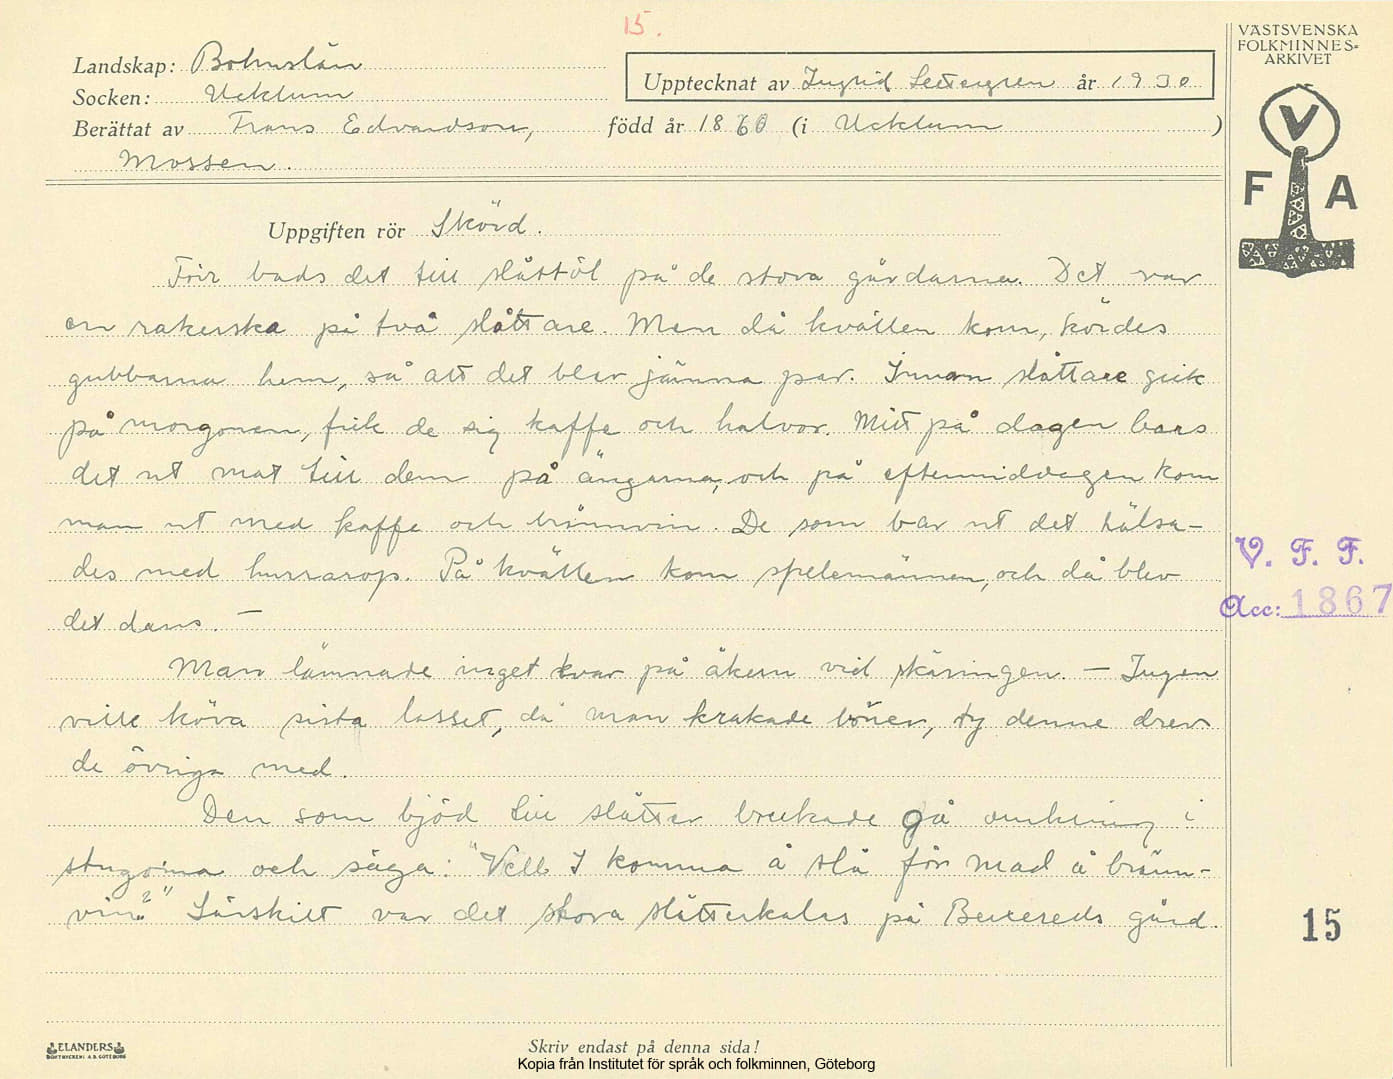 15.
VÄSTSVENSKA
FOLKMINNES-
ARKIVET
Landskap: Bohuslän
Socken: Ucklum
Upptecknat av Ingrid år 1930
Berättat av Frans Edvardson, född år 1860 (i Ucklum )
Mossen.
V
F A
Uppgiften rör Skörd.
Förr bads det till slåttöl på de stora gårdarna. Det var
en rakerska på två slåttare. Men då kvällen kom, kördes
gubbarna hem, så att det blev jämna par. Innan slåttare gick
på morgonen, fick de sig kaffe och halvor. Mitt på dagen bars
det ut mat till dem på ängarna, och på eftermiddagen kom
man ut med kaffe och brännvin. De som bar ut det hälsa-
des med hurrarop. På kvällen kom spelemännen, och då blev
det dans. —
Man lämnade inget kvar på åkern vid skäringen. — Ingen
ville köra sista lasset, då man krakade böner, ty denne drev
de övriga med.
Den som bjöd till slåtter brukade gå omkring i
stugorna och säga: "Vell I komma å slå för mad å bränn-
vin?" Särskilt var det stora slåtterkalas på gård.
V. F. F.
Acc: 1867
15
ELANDERS
BOKTRYCKERI A.B. GÖTEBORG
Skriv endast på denna sida!
Kopia från Institutet för språk och folkminnen, Göteborg